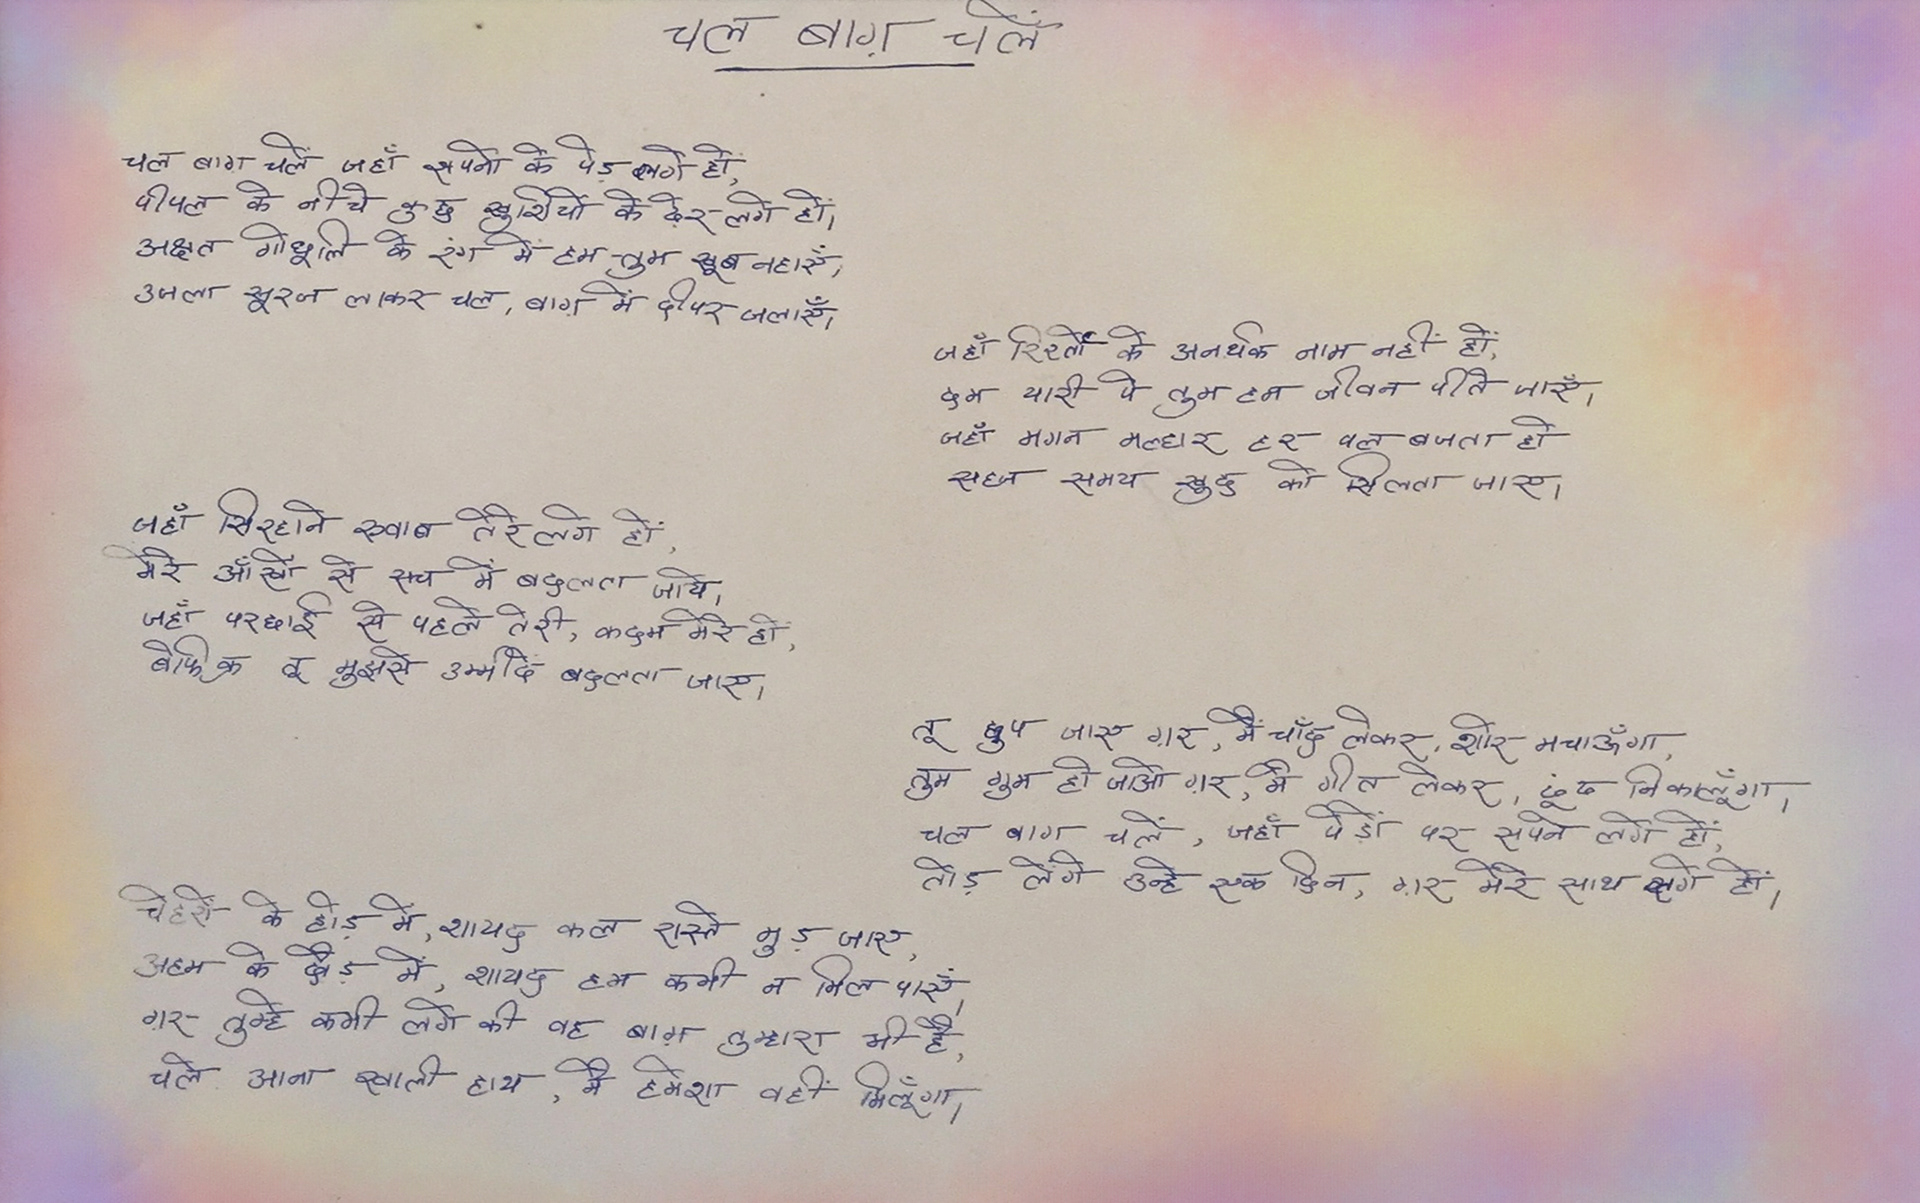 चल बाग़ चलें
चल बाग चलें जहाँ सपनों के पेड़ लगे हों,
पीपल के नीचे कुछ खुशियों के ढ़ेर लगे हों,
अक्षत गोधूलि के रंग में हम तुम खूब नहाएँ,
उजला सूरज लाकर चल, बाग़ में दीपर जलाएँ,
जहाँ रिश्तों के अनर्थक नाम नहीं हों,
दम यारी पे तुम हम जीवन पीते जाएँ,
जहाँ मगन मल्हार हर पल बजता हो
सहज समय खुद को सिलता जाए,
जहाँ सिरहाने ख्वाब तेरे लगे हों,
मेरे आँखों से सच में बदलता जाये,
जहाँ परछाई से पहले तेरी, कदम मेरे हों,
बेफिक्र तू मुझसे उम्मीदें बदलता जाए,
तू छुप जाए ग़र, मैं चाँद लेकर, शोर मचाऊँगा,
तुम गुम हो जाओ ग़र, मैं गीत लेकर, ढूंढ निकालूँगा,
चल बाग चलें, जहाँ पेड़ों पर सपने लगे हों,
तोड़ लेंगे उन्हे एक दिन, ग़र मेरे साथ लगे हों,
चेहरों के होड़ में, शायद कल रास्ते मुड़ जाए,
अहम के दौड़ में, शायद हम कभी न मिल पाएँ,
गर तुम्हे कभी लगे की वह बाग़ तुम्हारा भी है,
चले आना खाली हाथ, मैं हमेशा वहीं मिलूँगा,